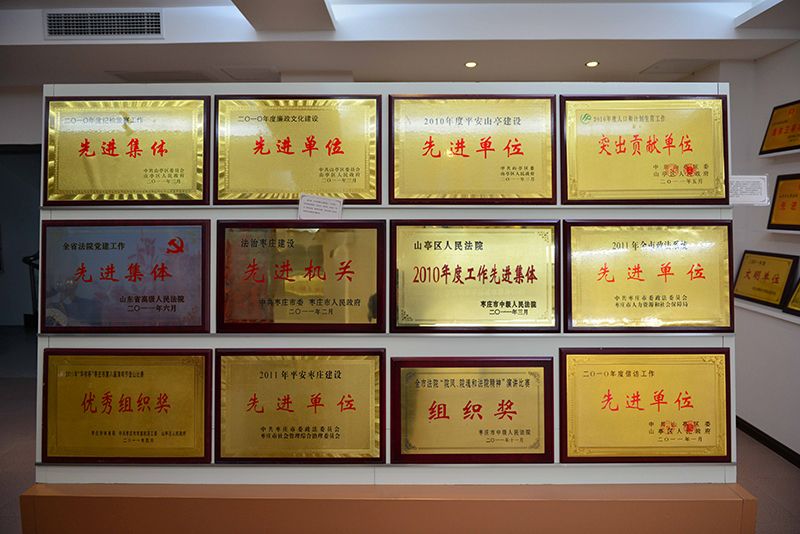 二〇一〇年度纪检监察工作
先进集体
中共山亭区委员会
山亭区人民政府
二〇一一年二月
二〇一〇年度廉政文化建设
先进单位
中共山亭区委员会
山亭区人民政府
二〇一一年三月
2010年度平安山亭建设
先进单位
中共山亭区委
山亭区人民政府
二〇一一年三月
2010年度人口和计划生育工作
突出贡献单位
中共山亭区委
山亭区人民政府
二〇一一年五月
全省法院党建工作
先进集体
山东省高级人民法院
二〇一一年六月
法治枣庄建设
先进机关
中共枣庄市委 枣庄市人民政府
二〇一一年二月
山亭区人民法院
2010年度工作先进集体
枣庄市中级人民法院
二〇一一年三月
2011年全市政法系统
先进单位
中共枣庄市委政法委员会
枣庄市人力资源和社会保障局
优秀组织奖
二〇一一年
2011年平安枣庄建设
先进单位
中共枣庄市委政法委员会
枣庄市社会管理综合治理委员会
全市法院“院风、院魂和法院精神”演讲比赛
组织奖
枣庄市中级人民法院
二〇一一年十一月
二〇一〇年度信访工作
先进单位
中共山亭区委
山亭区人民政府
二〇一一年一月
文明单位